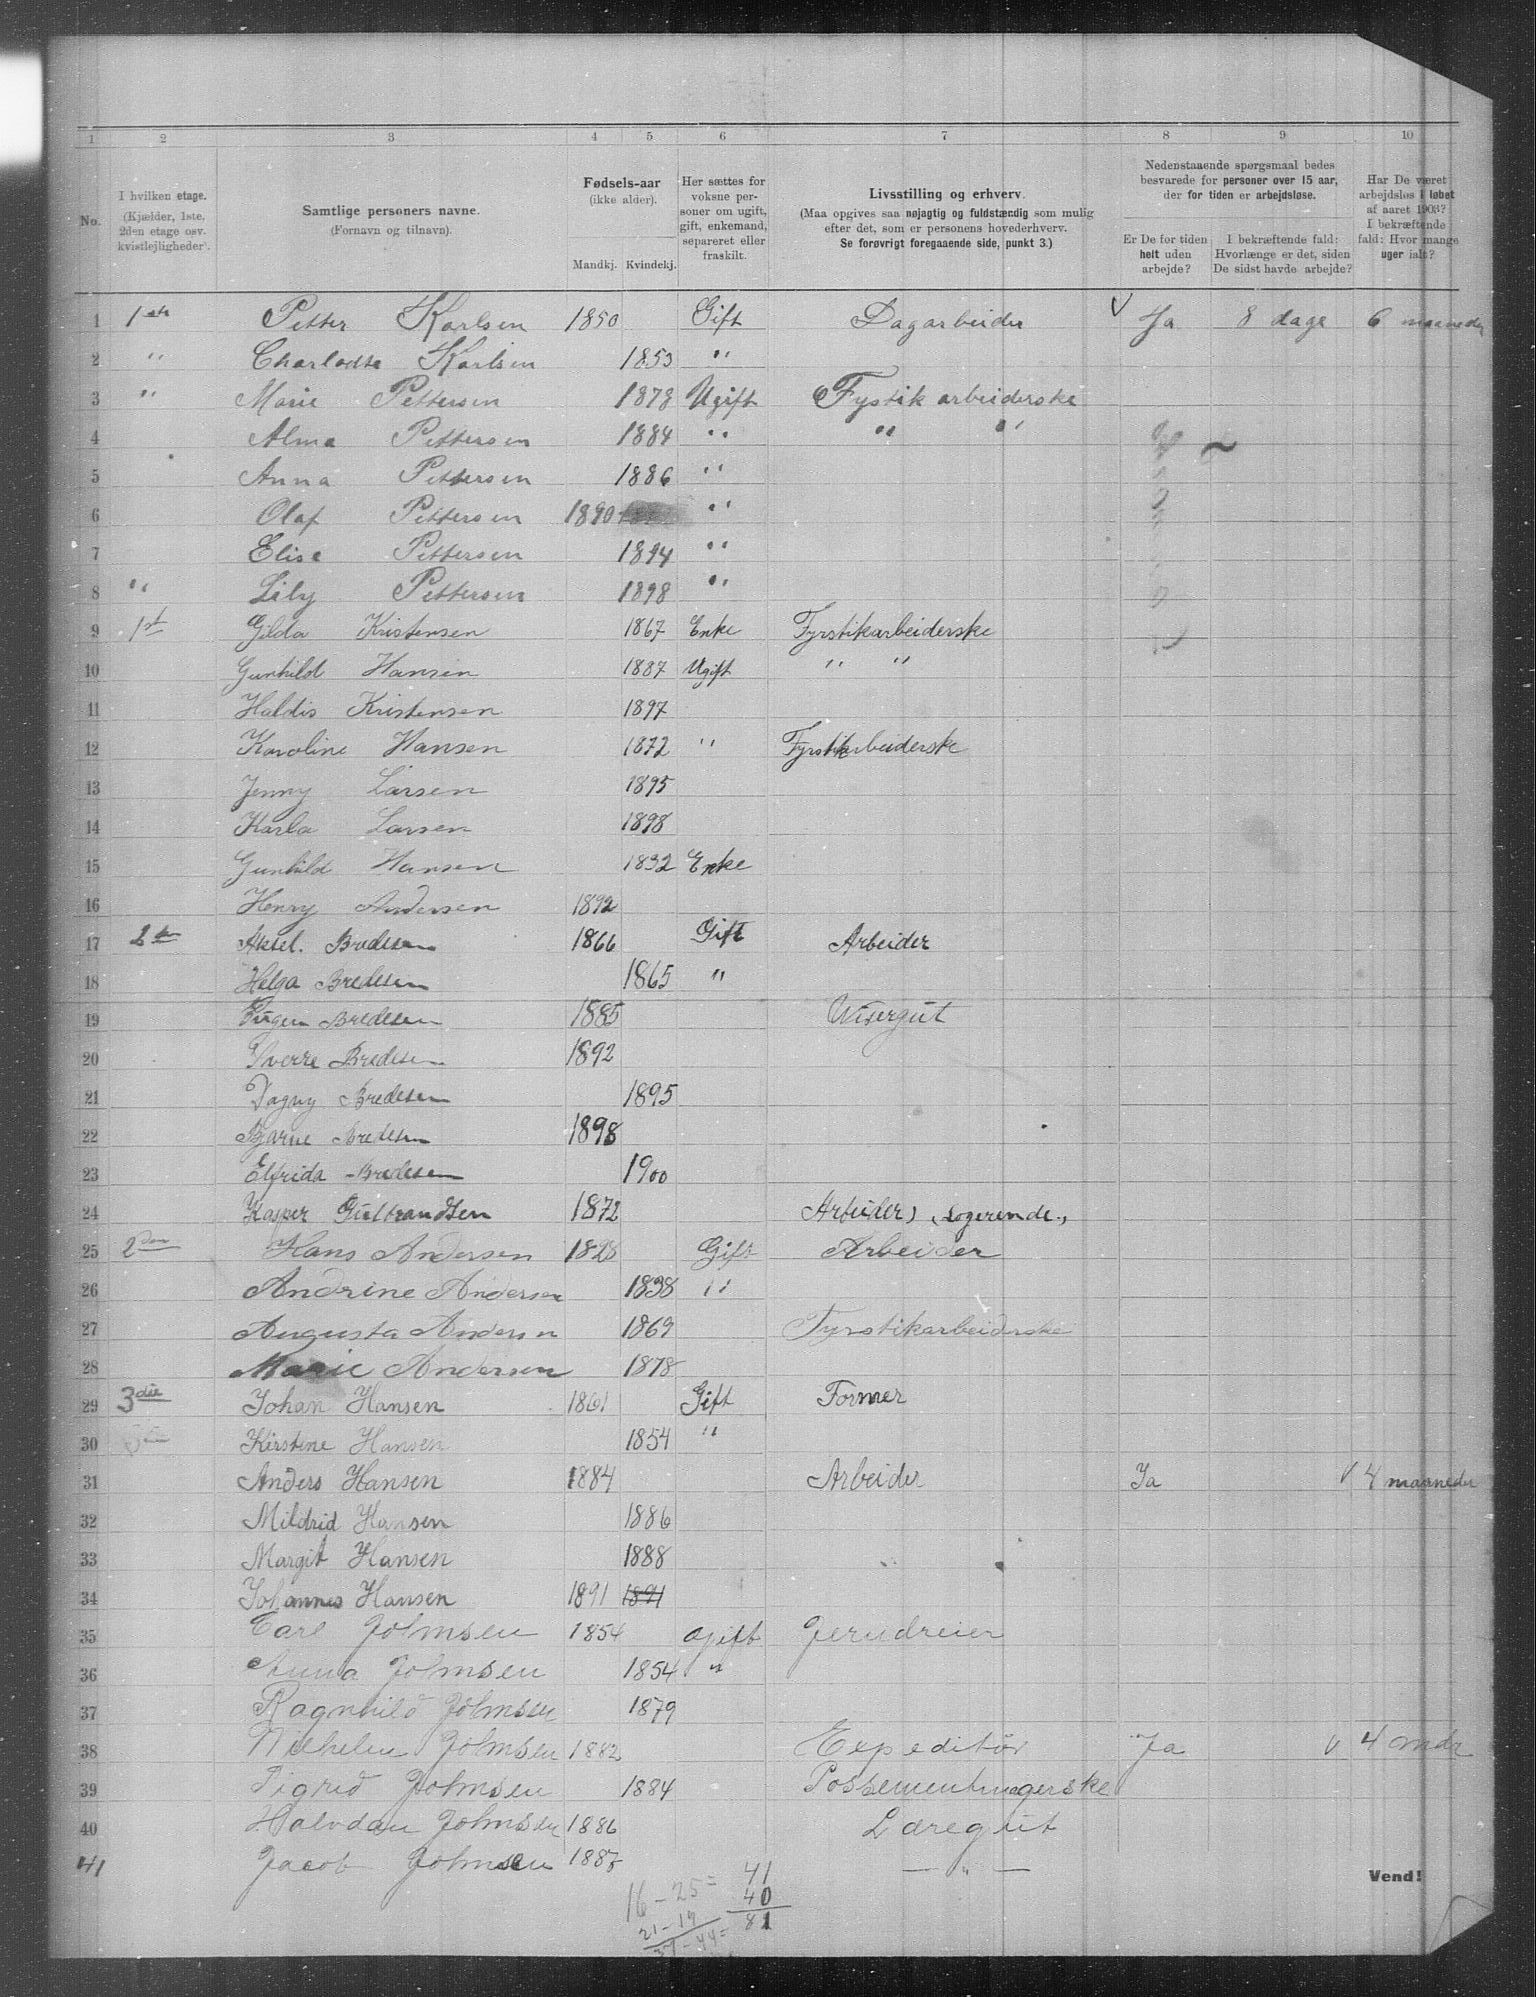 1 2 3 4 5 6 7 8 9 10
No.
I hvilken etage. (Kjælder, 1ste, 2den etage osv. kvistleiligheder).
Samtlige personers navne. (Fornavn og tilnavn).
Fødsels-aar (ikke alder).
Mandkj. Kvindekj.
Her sættes for voksne personer om ugift, gift, enkemand, separeret eller fraskilt.
Livsstilling og erhverv. (Maa opgives saa nøjagtig og fuldstændig som mulig efter det, som er personens hovederhverv. Se forøvrigt foregaaende side, punkt 3.)
Nedenstaaende spørgsmaal bedes besvarede for personer over 15 aar, der for tiden er arbejdsløse.
Er De for tiden helt uden arbejde?
I bekræftende fald: Hvorlænge er det, siden De sidst havde arbejde?
Har De været arbejdsløs i løbet af aaret 1903? I bekræftende fald: Hvor mange uger ialt?
1 1ste Petter Karlsen 1850 Gift Dagarbeider V Ja 8 dage 6 maaneder
2 " Charlodte Karlsen 1853 "
3 " Marie Pettersen 1878 Ugift Fystik arbeiderske
4 Alma Pettersen 1884 " " "
5 Anna Pettersen 1886 "
6 Olaf Pettersen 1890 "
7 Elise Pettersen 1894 "
8 " Lily Pettersen 1898 "
9 1st Gilda Kristensen 1867 Enke Fyrstikarbeiderske
10 Gunhild Hansen 1887 Ugift " "
11 Haldis Kristensen 1897
12 Karoline Hansen 1872 " Fyrstikarbeiderske
13 Jenny Larsen 1895
14 Karla Larsen 1898
15 Gunhild Hansen 1832 Enke
16 Henry Andersen 1892
17 2den Aksel. Bredesen 1866 Gift Arbeider
18 Helga Bredesen 1865 "
19 Bredesen 1885 Visergut
20 Sverre Bredesen 1892
21 Dagny Bredesen 1895
22 Bjarne Bredesen 1898
23 Elfrida Bredesen 1900
24 Kasper Gulbrandsen 1872 Arbeider, (Logerende.)
25 2den Hans Andersen 1828 Gift Arbeider
26 Andrine Andersen 1838 "
27 Augusta Andersen 1869 Fyrstikarbeiderske
28 Marie Andersen 1878
29 3die Johan Hansen 1861 Gift Former
30 Kirstine Hansen 1854 "
31 Anders Hansen 1884 Arbeider Ja V 4 maaneder
32 Mildrid Hansen 1886
33 Margit Hansen 1888
34 Johannes Hansen 1891 1891
35 Carl Johnsen 1854 Gift Jerndreier
36 Anna Johnsen 1854 "
37 Ragnhild Johnsen 1879
38 Vilhelm Johnsen 1882 Expeditør Ja V 4 mdr
39 Sigrid Johnsen 1884 Possementmagerske
40 Halvdan Johnsen 1886 Læregut
41 Jacob Johnsen 1887 — " —
Vend!
16 - 25 = 41
21 - 19 40
37 - 44 = 81